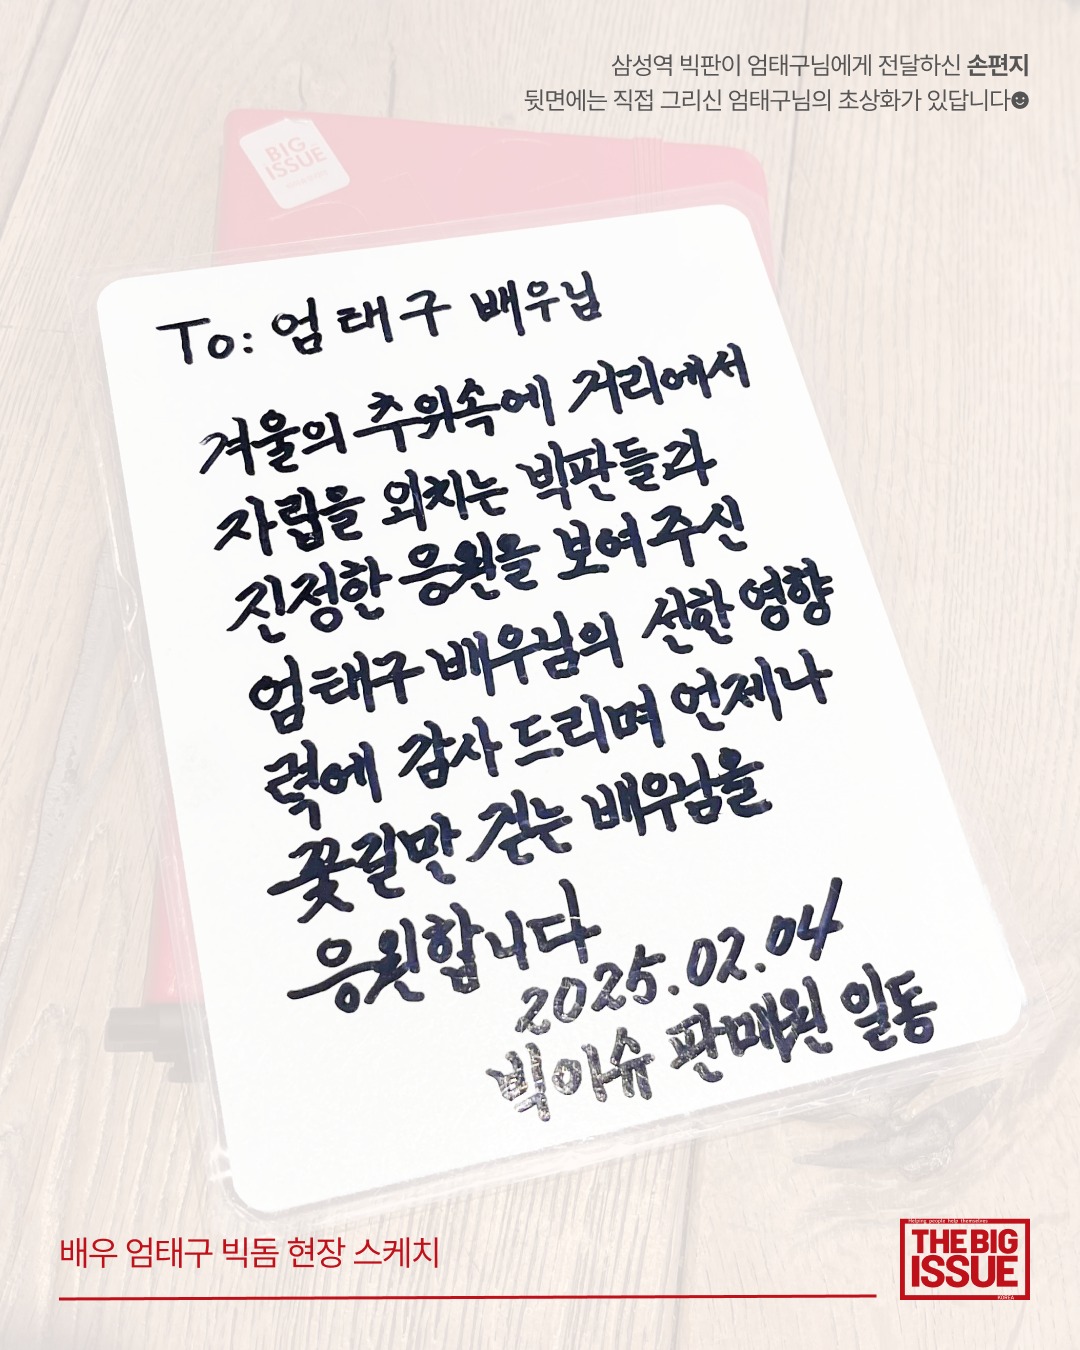 삼성역 빅판이 엄태구님에게 전달하신 손편지
뒷면에는 직접 그리신 엄태구님의 초상화가 있답니다☻
BIG
ISSUE
To: 엄태구 배우님
겨울의 추위속에 거리에서
자립을 외치는 빅판들과
진정한 응원을 보여주신
엄태구 배우님의 선한 영향
력에 감사 드리며 언제나
꽃길만 걷는 배우님을
응원합니다
2025.02.04
빅이슈 판매원 일동
배우 엄태구 빅돔 현장 스케치
Helping people help themselves
THE BIG
ISSUE
KOREA